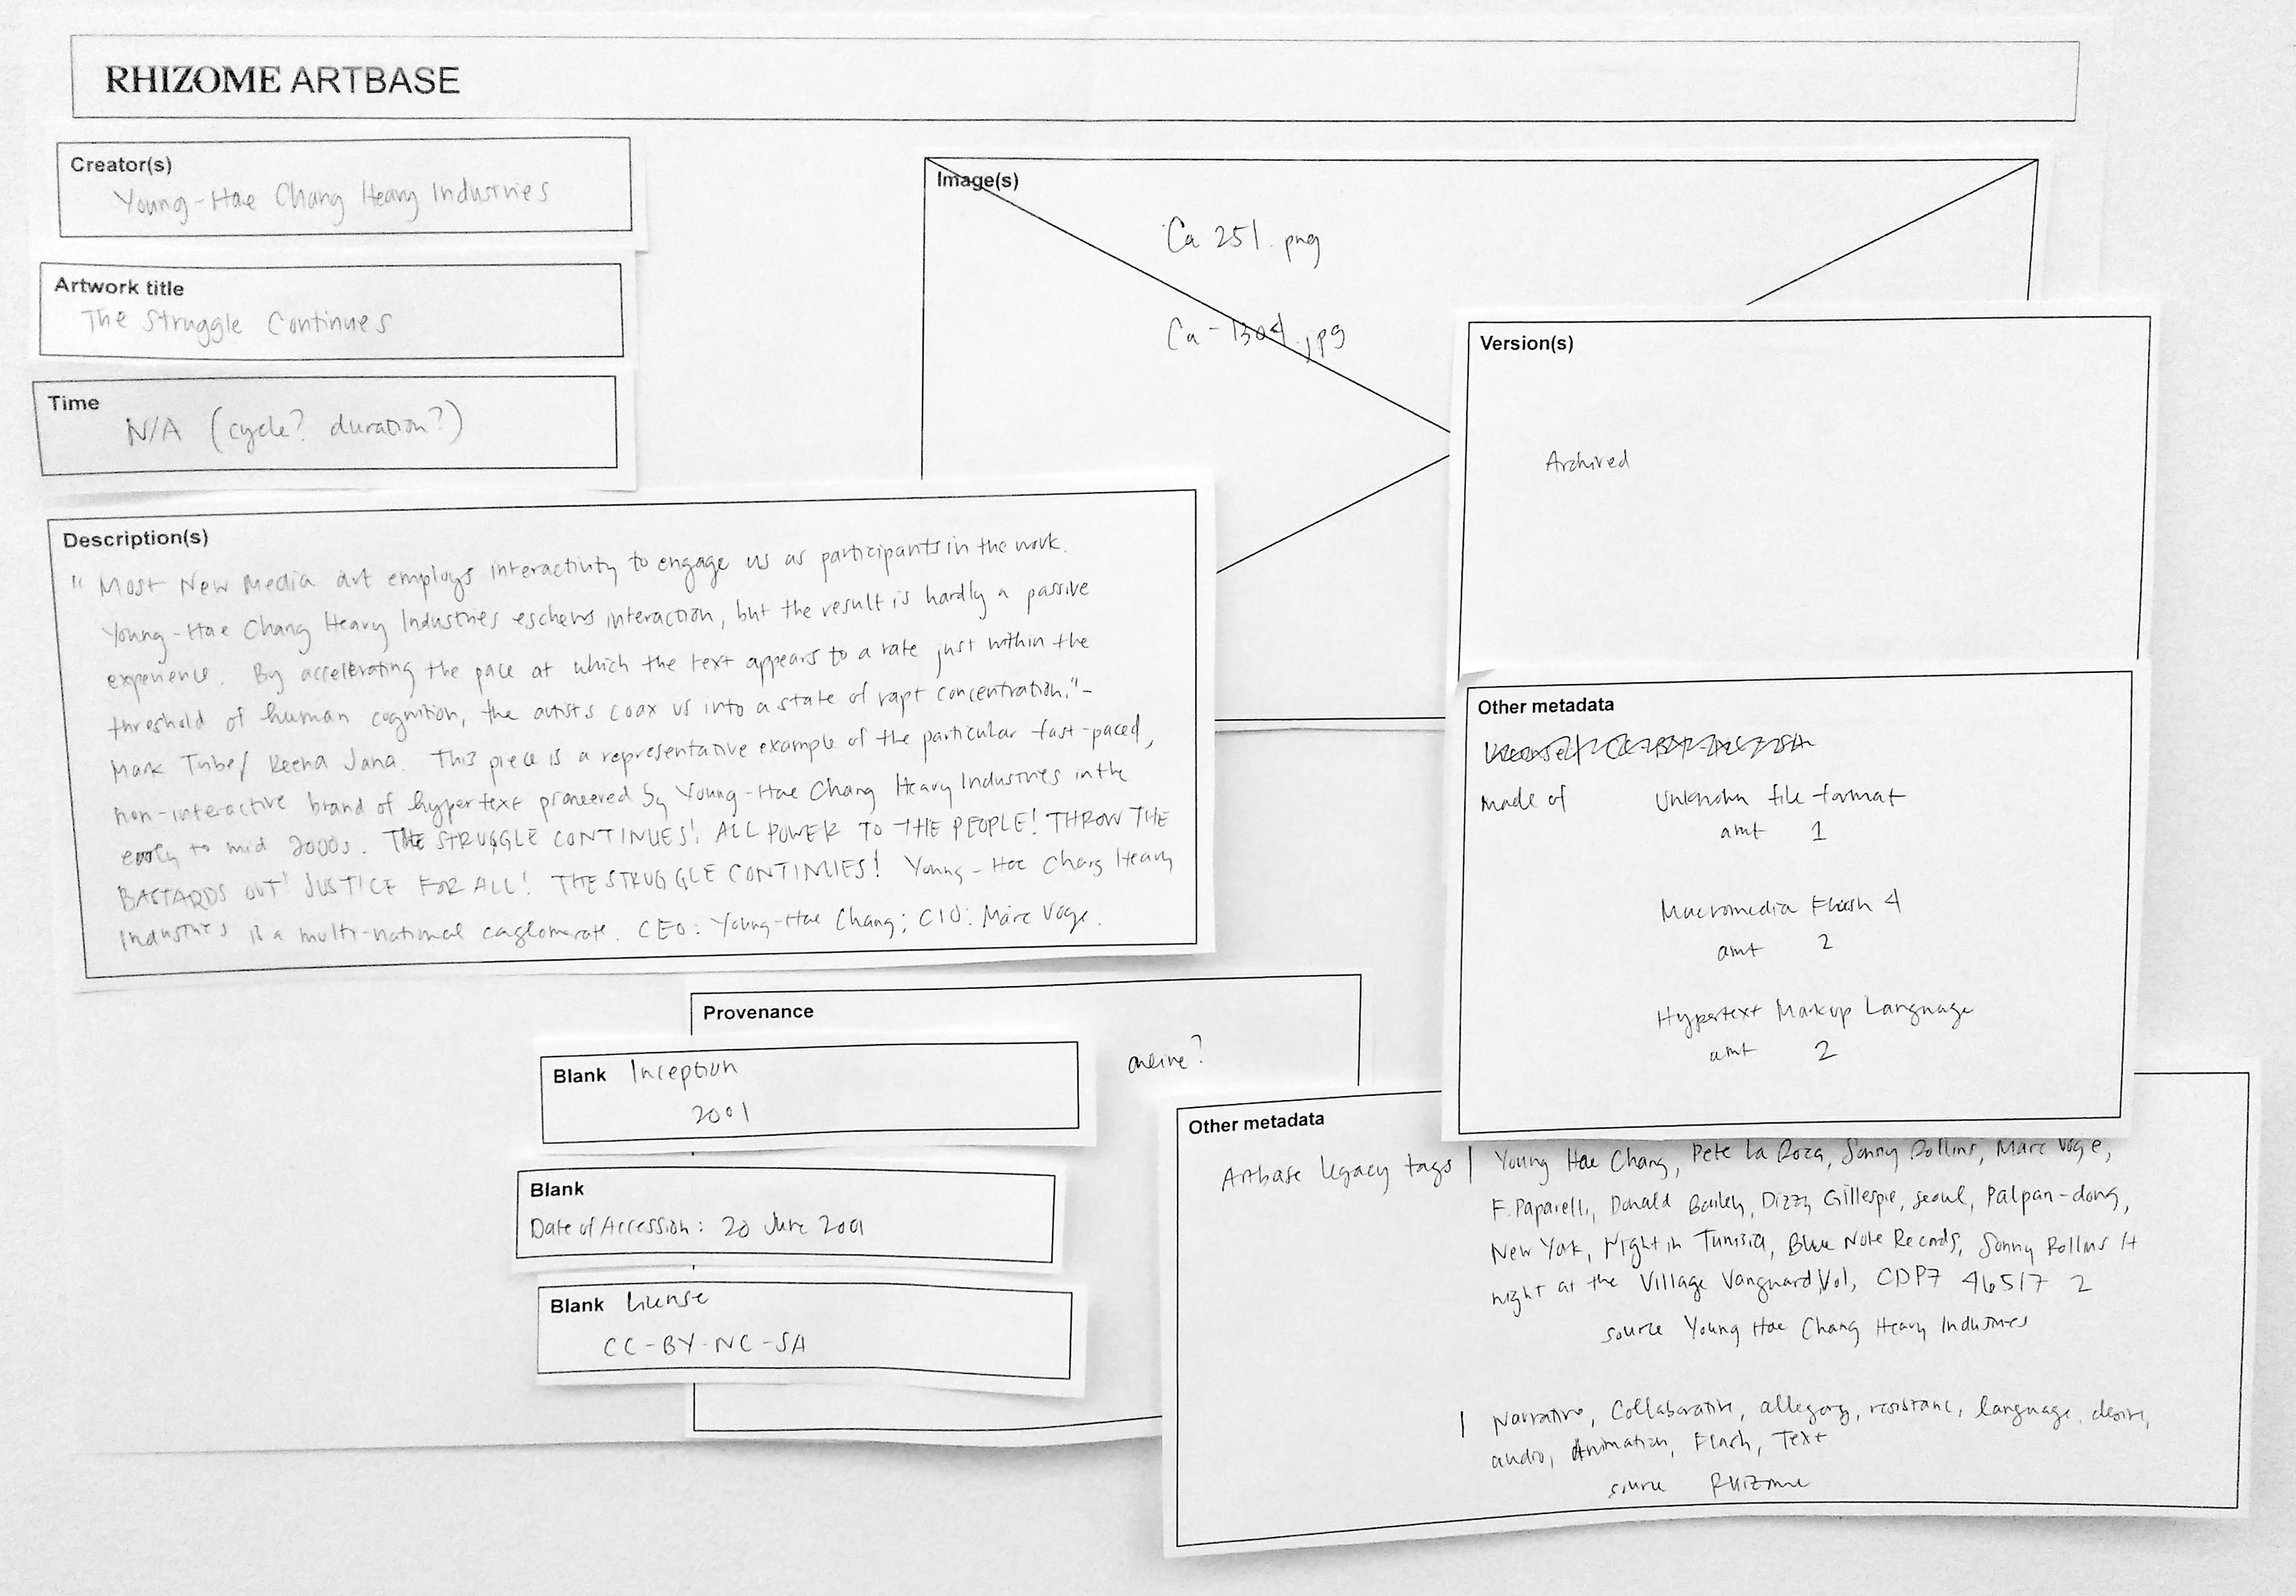 RHIZOME ARTBASE
Creator(s)
Young-Hae Chang Heavy Industries
Artwork title
The Struggle Continues
Time
N/A (cycle? duration?)
Description(s)
" Most New Media art employs interactivity to engage us as participants in the work.
Young-Hae Chang Heavy Industries eschews interaction, but the result is hardly a passive
experience. By accelerating the pace at which the text appears to a rate just within the
threshold of human cognition, the artists coax us into a state of rapt concentration."-
Mark Tribe/ Reena Jana. This piece is a representative example of the particular fast-paced,
non-interactive brand of hypertext pioneered by Young-Hae Chang Heavy Industries in the
early to mid 2000s. THE STRUGGLE CONTINUES! ALL POWER TO THE PEOPLE! THROW THE
BASTARDS OUT! JUSTICE FOR ALL! THE STRUGGLE CONTINUES! Young-Hae Chang Heavy
Industries is a multi-national caglomerate. CEO: Young-Hae Chang; CIO: Marc Voge.
Image(s)
Ca 251.png
Ca-1304.jpg
Version(s)
Archived
Other metadata
made of Unknown file format
amt 1
Macromedia Flash 4
amt 2
Hypertext Markup Language
amt 2
Provenance
online?
Blank Inception
2001
Blank
Date of Accession: 20 June 2001
Blank License
CC-BY-NC-SA
Other metadata
Artbase legacy tags | Young Hae Chang, Pete La Roca, Sonny Rollins, Marc Voge,
F. Paparelli, Donald Bailey, Dizzy Gillespie, seoul, Palpan-dong,
New York, Night in Tunisia, Blue Note Records, Sonny Rollins
night at the Village Vanguard, Vol, CDP7 46517 2
source Young Hae Chang Heavy Industries
| Narrative, Collaborative, allegory, resistance, language, desire,
audio, Animation, Flash, Text
source Rhizome